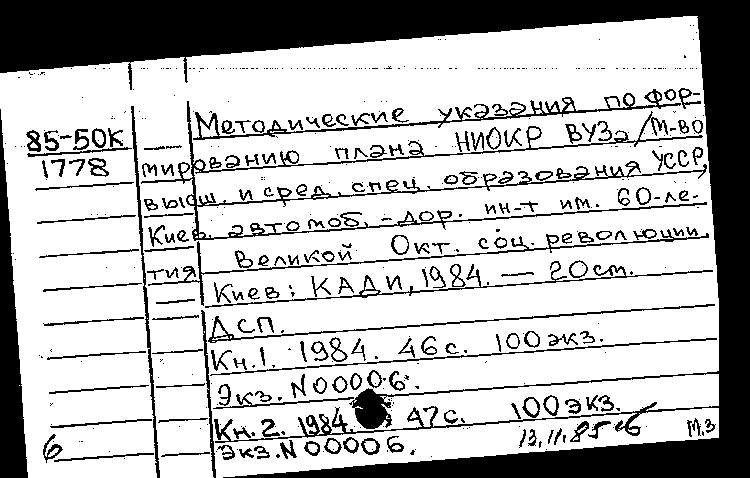 85-50К
1778
Методические указания по фор-
мированию плана НИОКР ВУЗа/М-во
высш. и сред. спец. образования УССР,
Киев. автомоб.-дор. ин-т им. 60-ле-
тия Великой Окт. соц. революции.
Киев: КАДИ, 1984. — 20 ст.
ДСП.
Кн.1. 1984. 46 с. 100 экз.
Экз. N 00006.
Кн.2. 1984. 47 с. 100 экз.
Экз. N 00006.
13.11.85
М.З
6